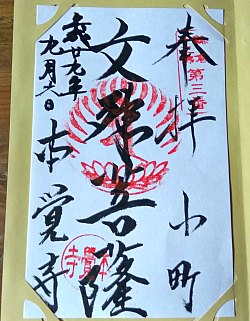 奉拝 小町
第三番
文殊菩薩
平成廿九年
九月六日
本覚寺
本覺寺